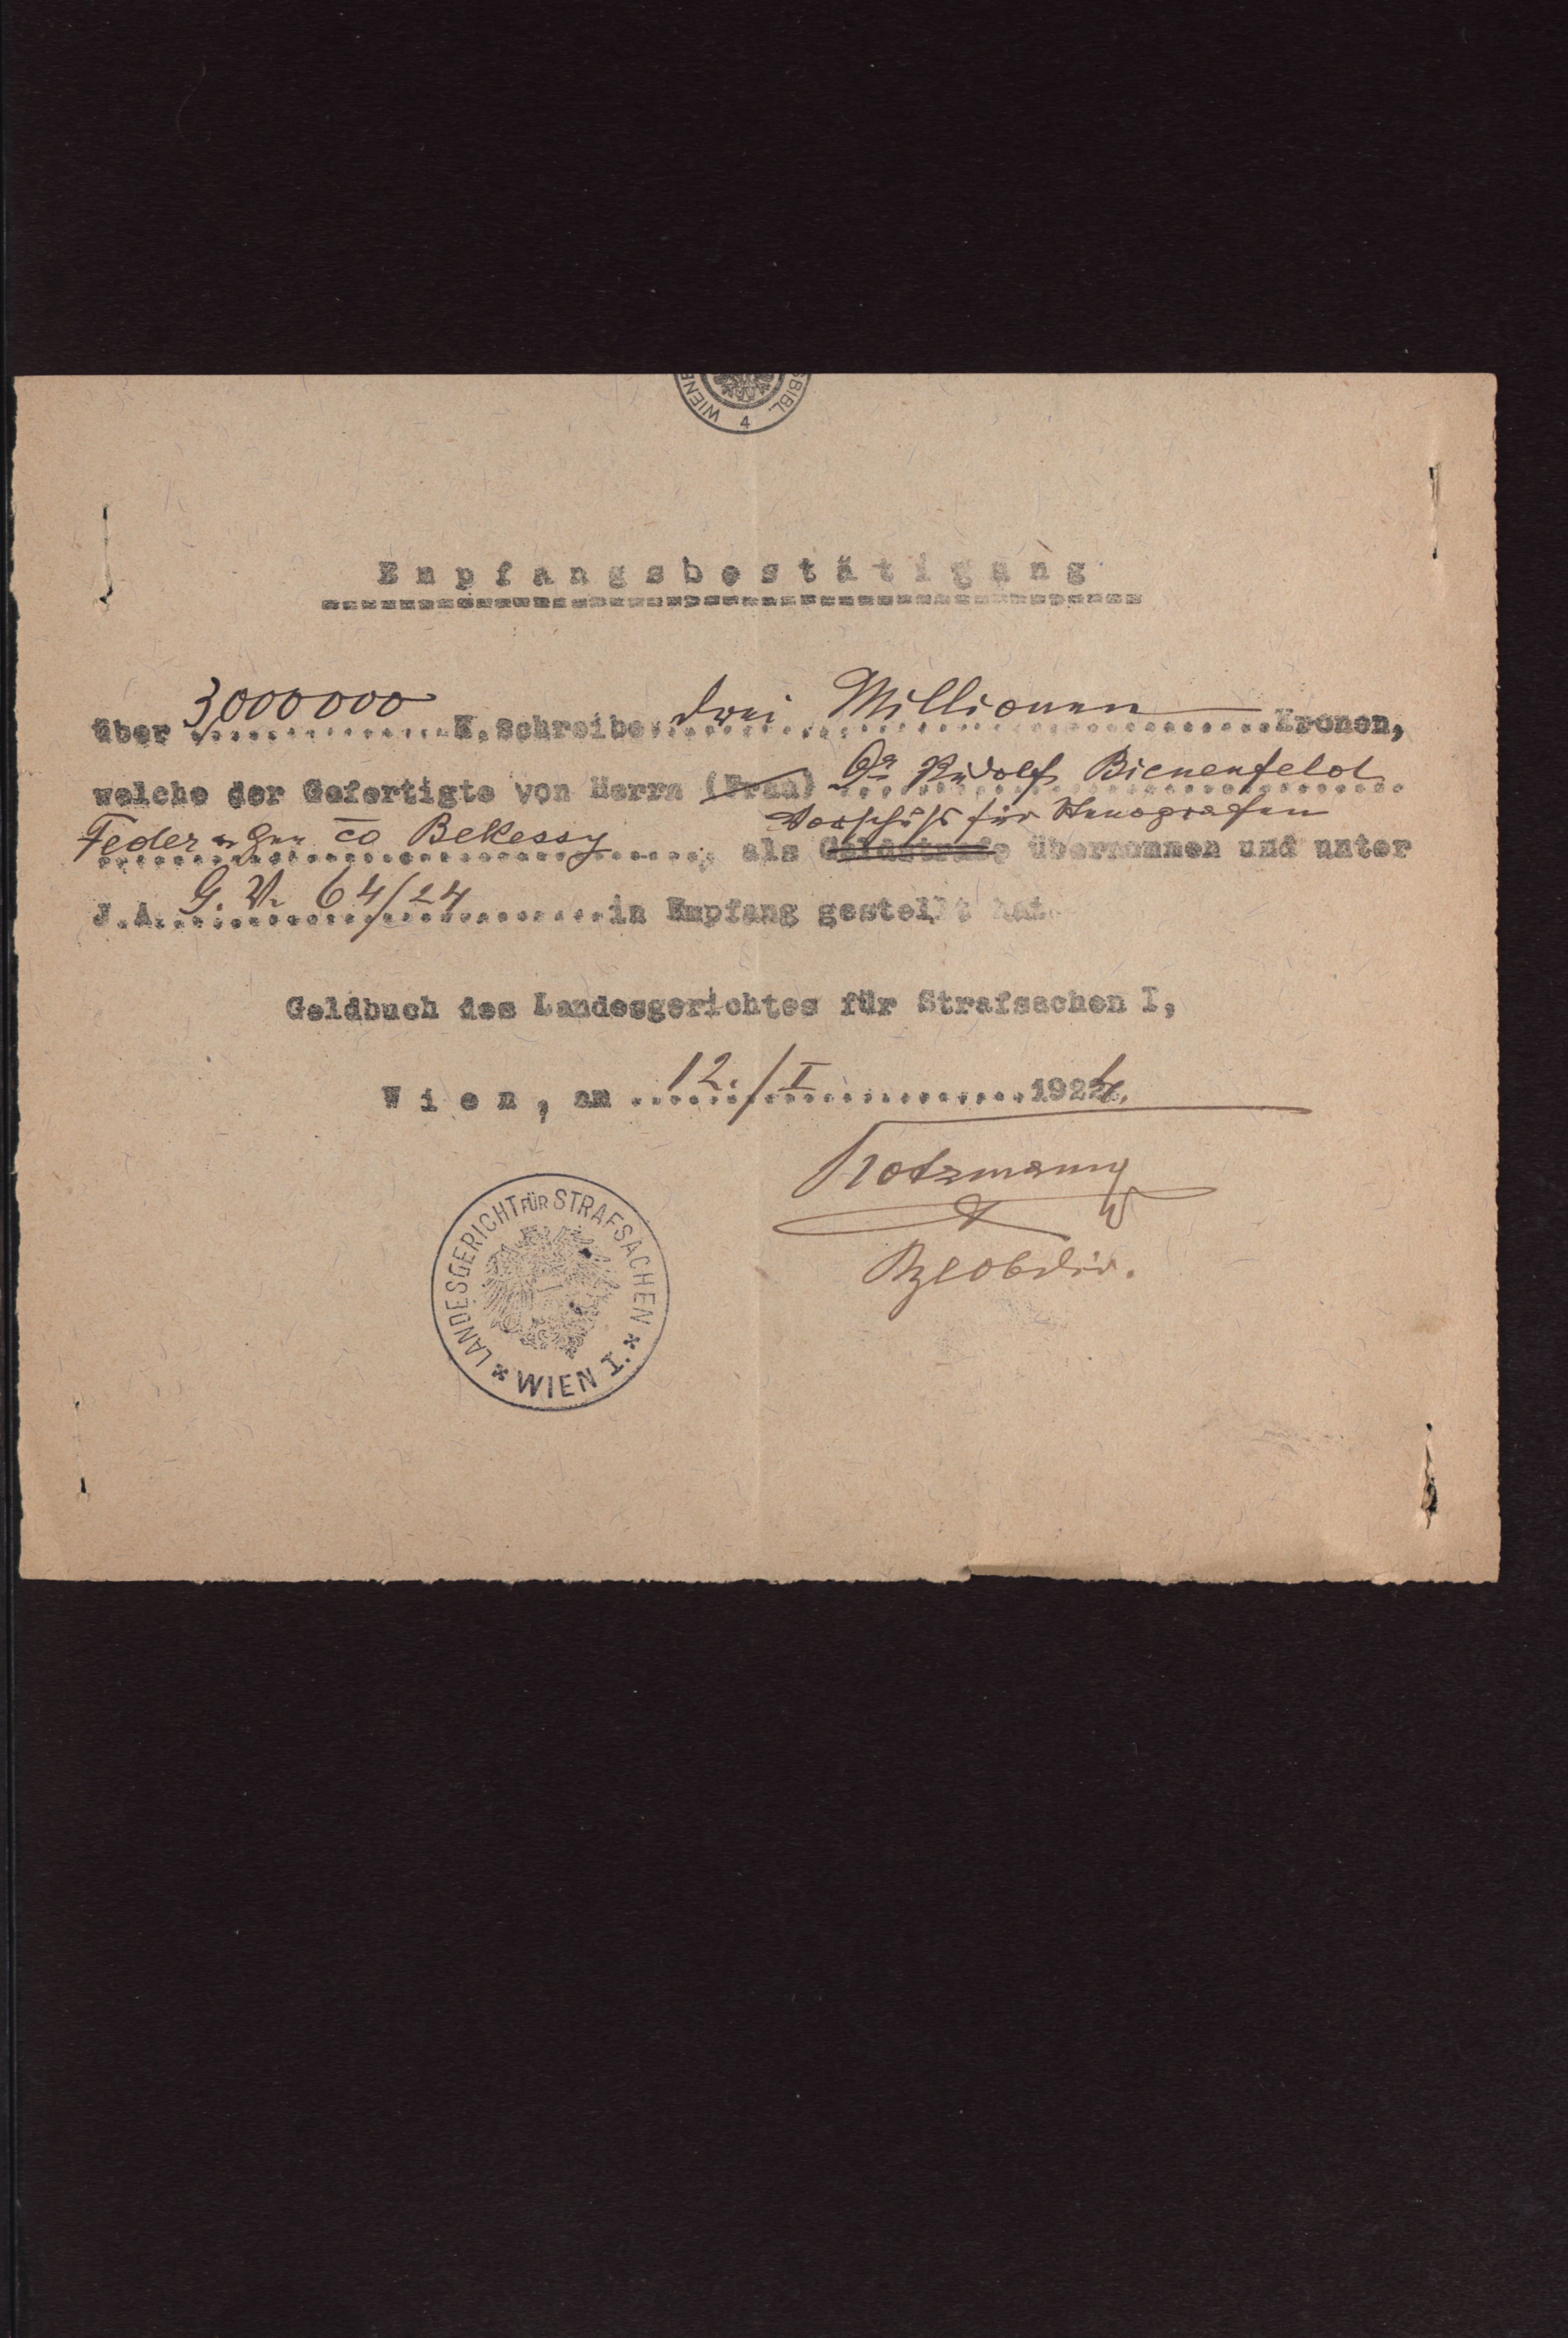 WIENE SBIBL. 4
Empfangsbestätigung
über 3000000 K. Schreibe: drei Millionen Kronen,
welche der Gefertigte von Herrn (Frau) Dr Rudolf Bienenfeld
Vorschuss für Stenografen
Feder u Gen ca Bekessy, als Geldstrafe übernommen und unter
J.A. G. V. 64/24 in Empfang gestellt hat.
Geldbuch des Landesgerichtes für Strafsachen I,
Wien, am 12./I 1924.
LANDESGERICHT FÜR STRAFSACHEN
* WIEN I. *